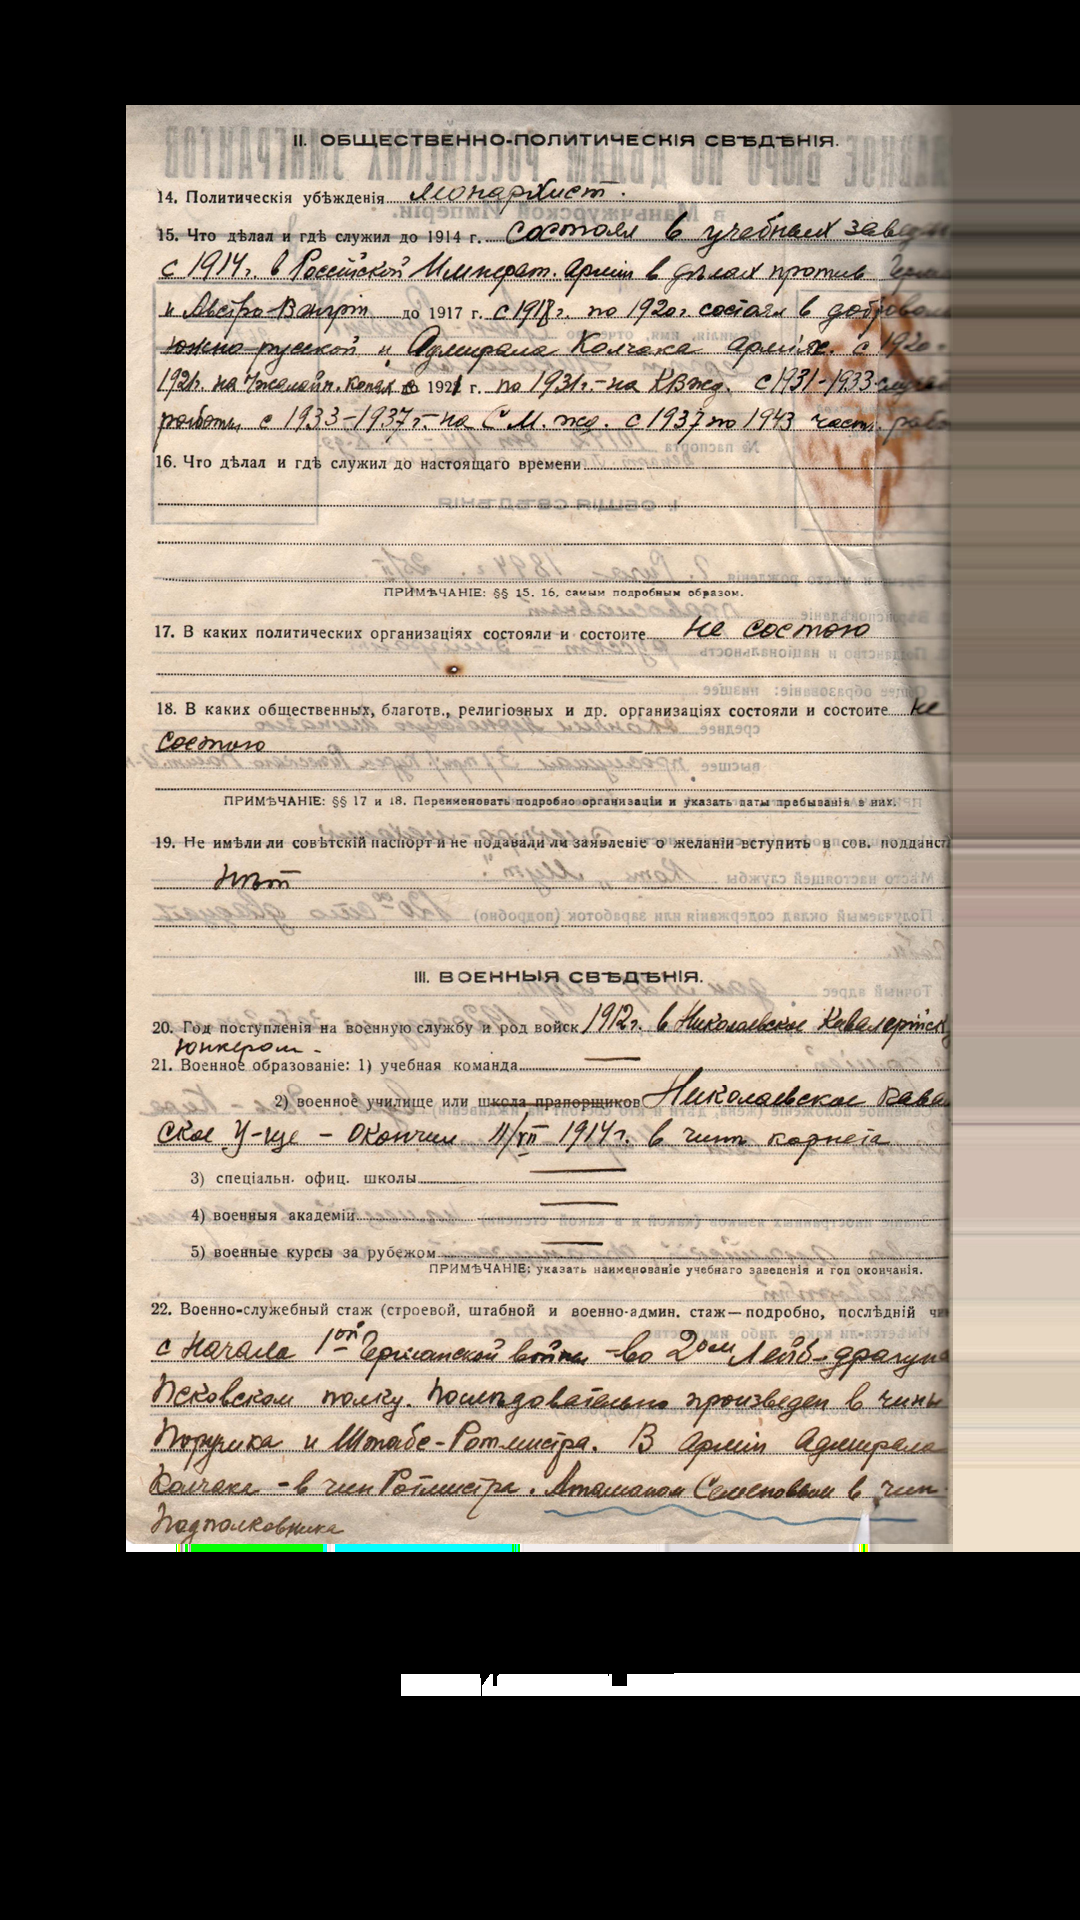 II. ОБЩЕСТВЕННО-ПОЛИТИЧЕСКІЯ СВѢДѢНІЯ.
14. Политическія убѣжденія монархист.
15. Что дѣлал и гдѣ служил до 1914 г. состоял в учебных
с 1914 г. в Россійской Императ. арміи в дѣлах против
и Австро-Венгріи до 1917 г. с 1918 г. по 1920 г. состоял в
южно русской и Адмирала Колчака с 1920
1921 г. на 1921 г. по 1931 г. - на КВжд. с 1931-1933
работы с 1933-1937 г. - на С М. жд. с 1937 по 1943 частн.
16. Что дѣлал и гдѣ служил до настоящаго времени
ПРИМѢЧАНІЕ: §§ 15, 16, самым подробным образом.
17. В каких политических организаціях состояли и состоите не состою
18. В каких общественных, благотв., религіозных и др. организаціях состояли и состоите не
состою
ПРИМѢЧАНІЕ: §§ 17 и 18. Переименовать подробно организаціи и указать даты пребыванія в них.
19. Не имѣли ли совѣтскій паспорт и не подавали ли заявленіе о желаніи вступить в сов. подданст
Нѣт
III. ВОЕННЫЯ СВѢДѢНІЯ.
20. Год поступленія на военную службу и род войск 1912 г. в Николаевское Кавалерійск
юнкером.
21. Военное образованіе: 1) учебная команда
2) военное училище или школа прапорщиков Николаевское Кава
ское У-ще - окончил 1914 г. в чинѣ корнета
3) спеціальн. офиц. школы
4) военныя академіи
5) военные курсы за рубежом
ПРИМѢЧАНІЕ: указать наименованіе учебнаго заведенія и год окончанія.
22. Военно-служебный стаж (строевой, штабной и военно-админ. стаж—подробно, послѣдній чи
с Начала 1ой Германской войны - во 2ом Лейб-драгун
Псковском полку. Послѣдовательно произведен в чины
Поручика и Штабс-Ротмистра. В арміи Адмирала
Колчака - в чин Ротмистра. Атаманом Семеновым в чин
Подполковника